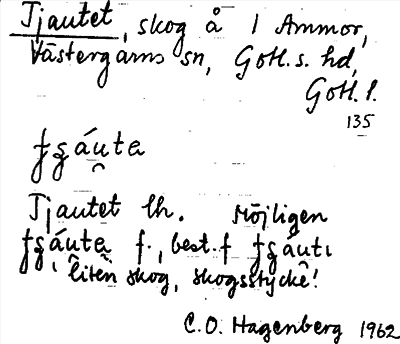 Tjautet, skog å 1 Ammor,
Västergarns sn, Gotl. s. hd,
Gotl. l.
135
Tjautet lh. Möjligen
f., best. f
'liten skog, skogsstycke'.
C.O. Hagenberg 1962